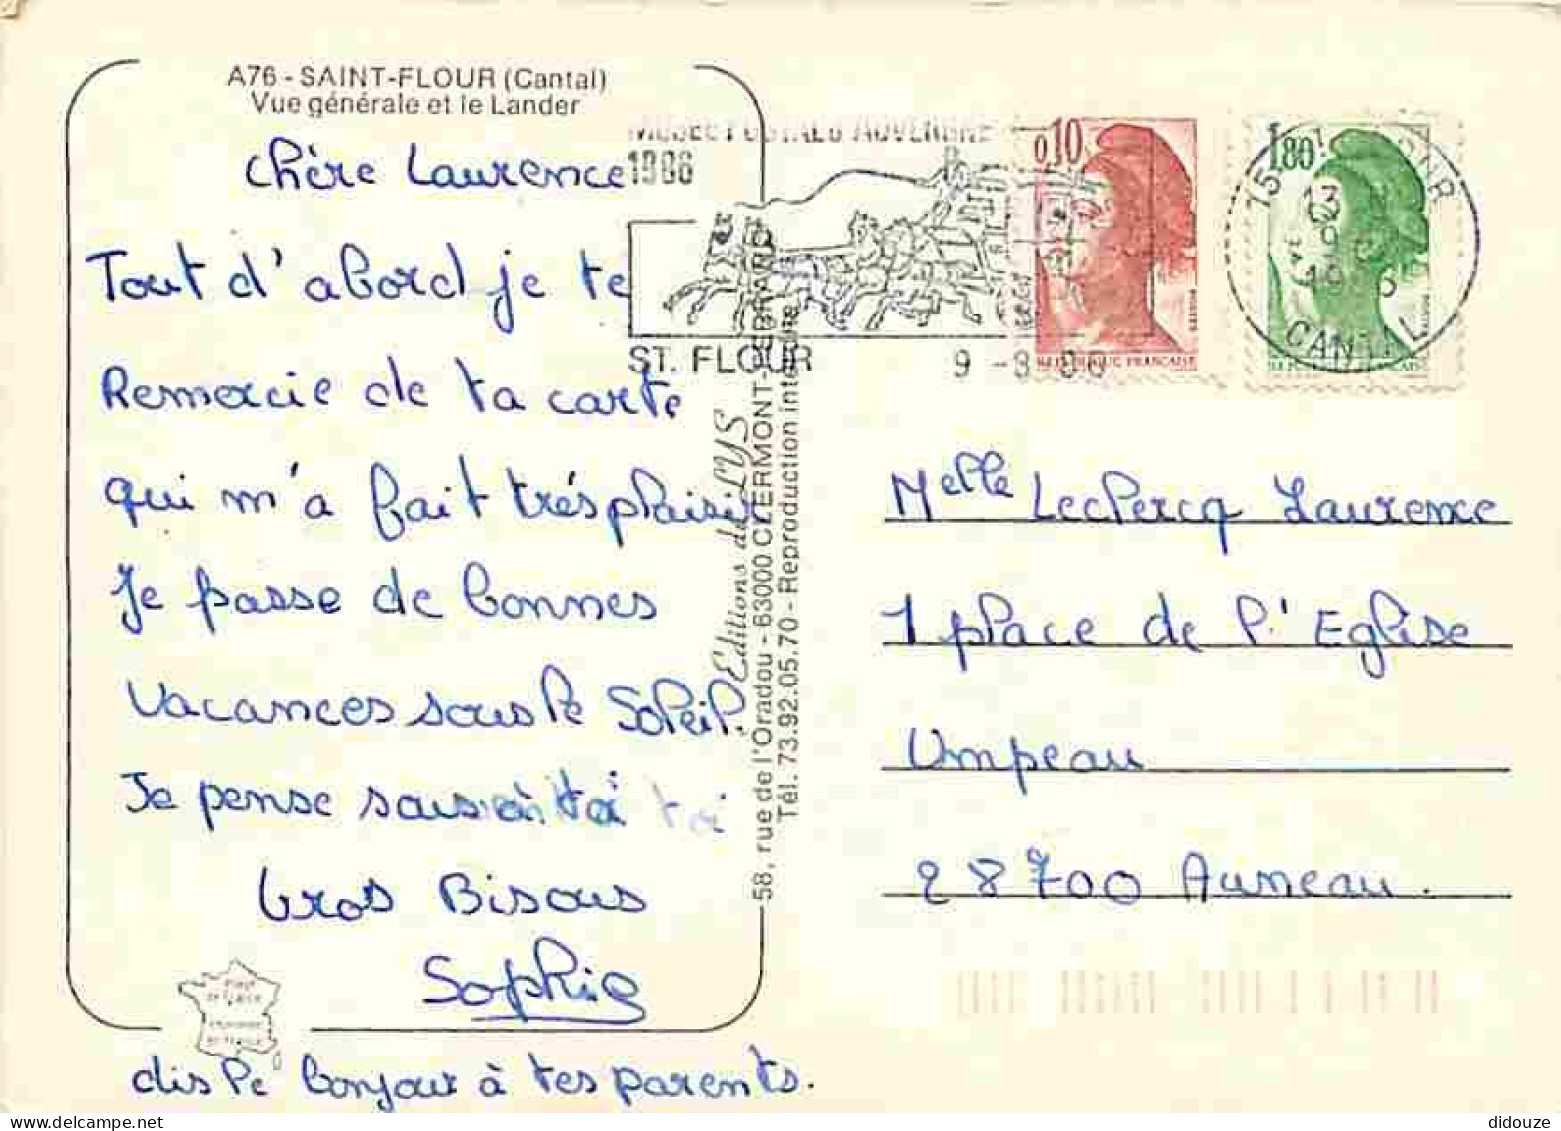 A76 - SAINT-FLOUR (Cantal)
Vue générale et le Lander
chère Laurence
Tout d'abord je te
Remercie de ta carte
qui m'a fait très plaisir
Je passe de bonnes
Vacances sous le Soleil.
Je pense sous à toi toi
Gros Bisous
Sophie
dis le bonjour à tes parents.
Editions du LYS
58, rue de l'Oradou - 63000 CLERMONT-FERRAND
Tél. 73.92.05.70 - Reproduction interdite
MUSEE POSTAL D'AUVERGNE
1986
ST. FLOUR
9 -8
0,10
REPUBLIQUE FRANCAISE
1,80
15
13 H
9
19 6
CANTAL
Melle Leclercq Laurence
1 place de l'Eglise
Umpeau
28700 Auneau.
didouze